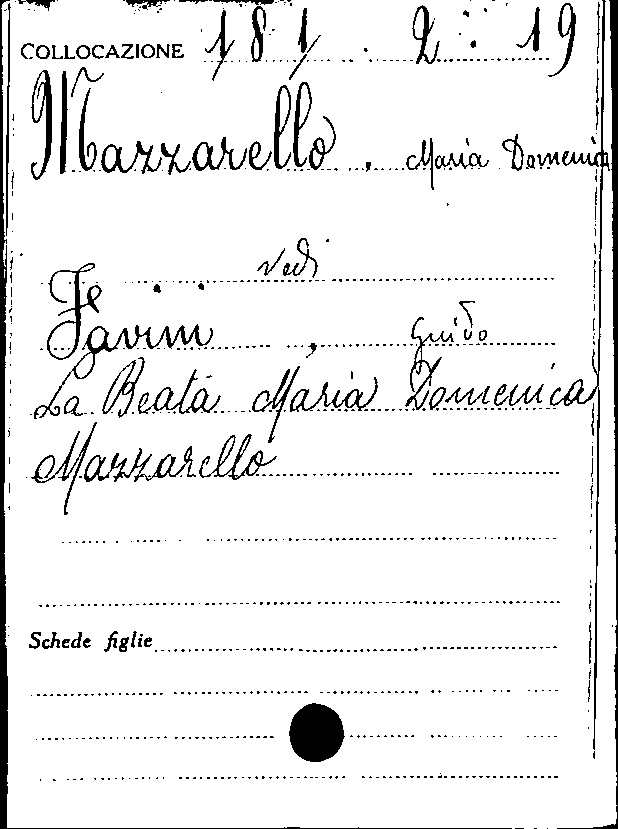 COLLOCAZIONE 181. 2. 19
Mazzarello, Maria Domenica
Vedi
Favini, Guido
La Beata Maria Domenica
Mazzarello
Schede figlie